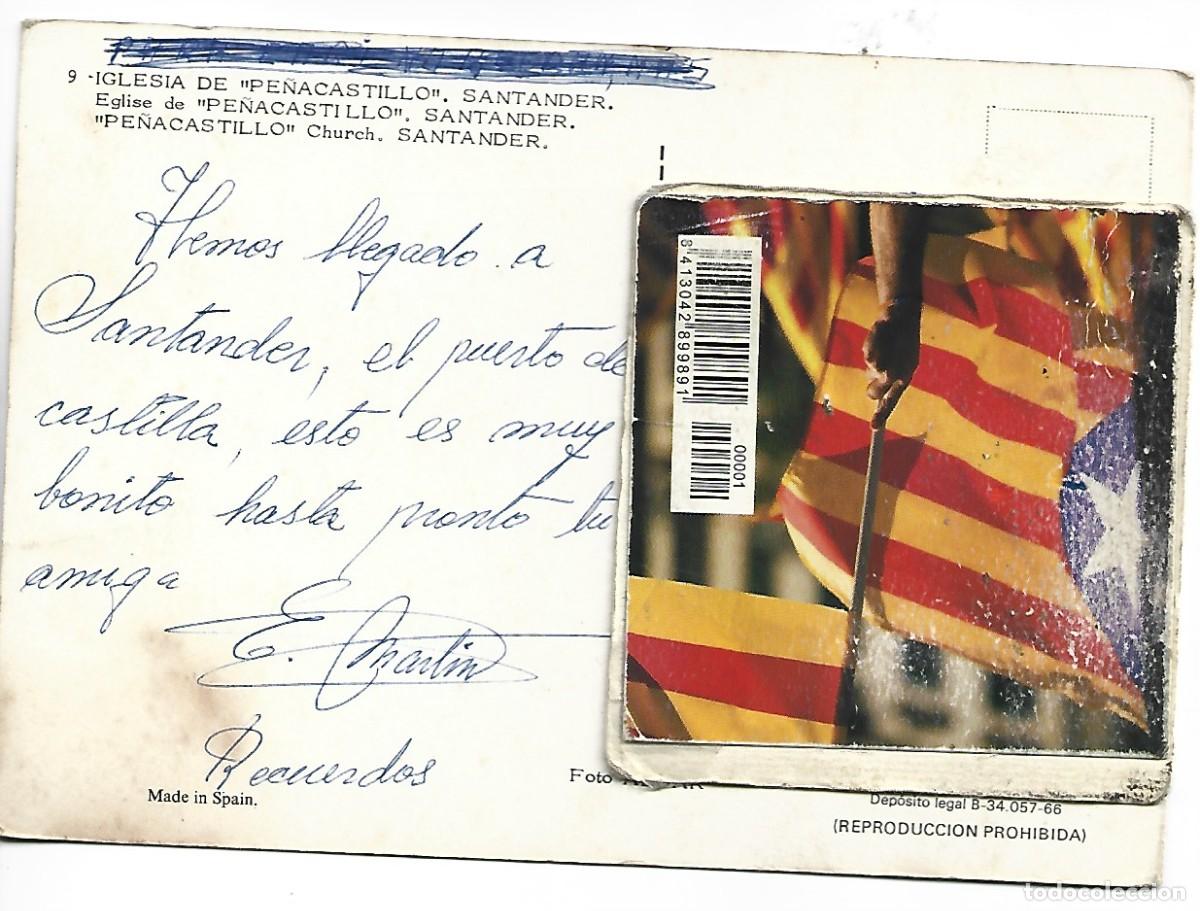 9 -IGLESIA DE "PEÑACASTILLO". SANTANDER.
Eglise de "PEÑACASTILLO". SANTANDER.
"PEÑACASTILLO" Church. SANTANDER.
Hemos llegado a
Santander, el puerto de
castilla, esto es muy
bonito hasta pronto tu
amiga
E. Martin
Recuerdos
Made in Spain.
Foto
8 413042 899891
00001
Depósito legal B-34.057-66
(REPRODUCCION PROHIBIDA)
todocoleccion